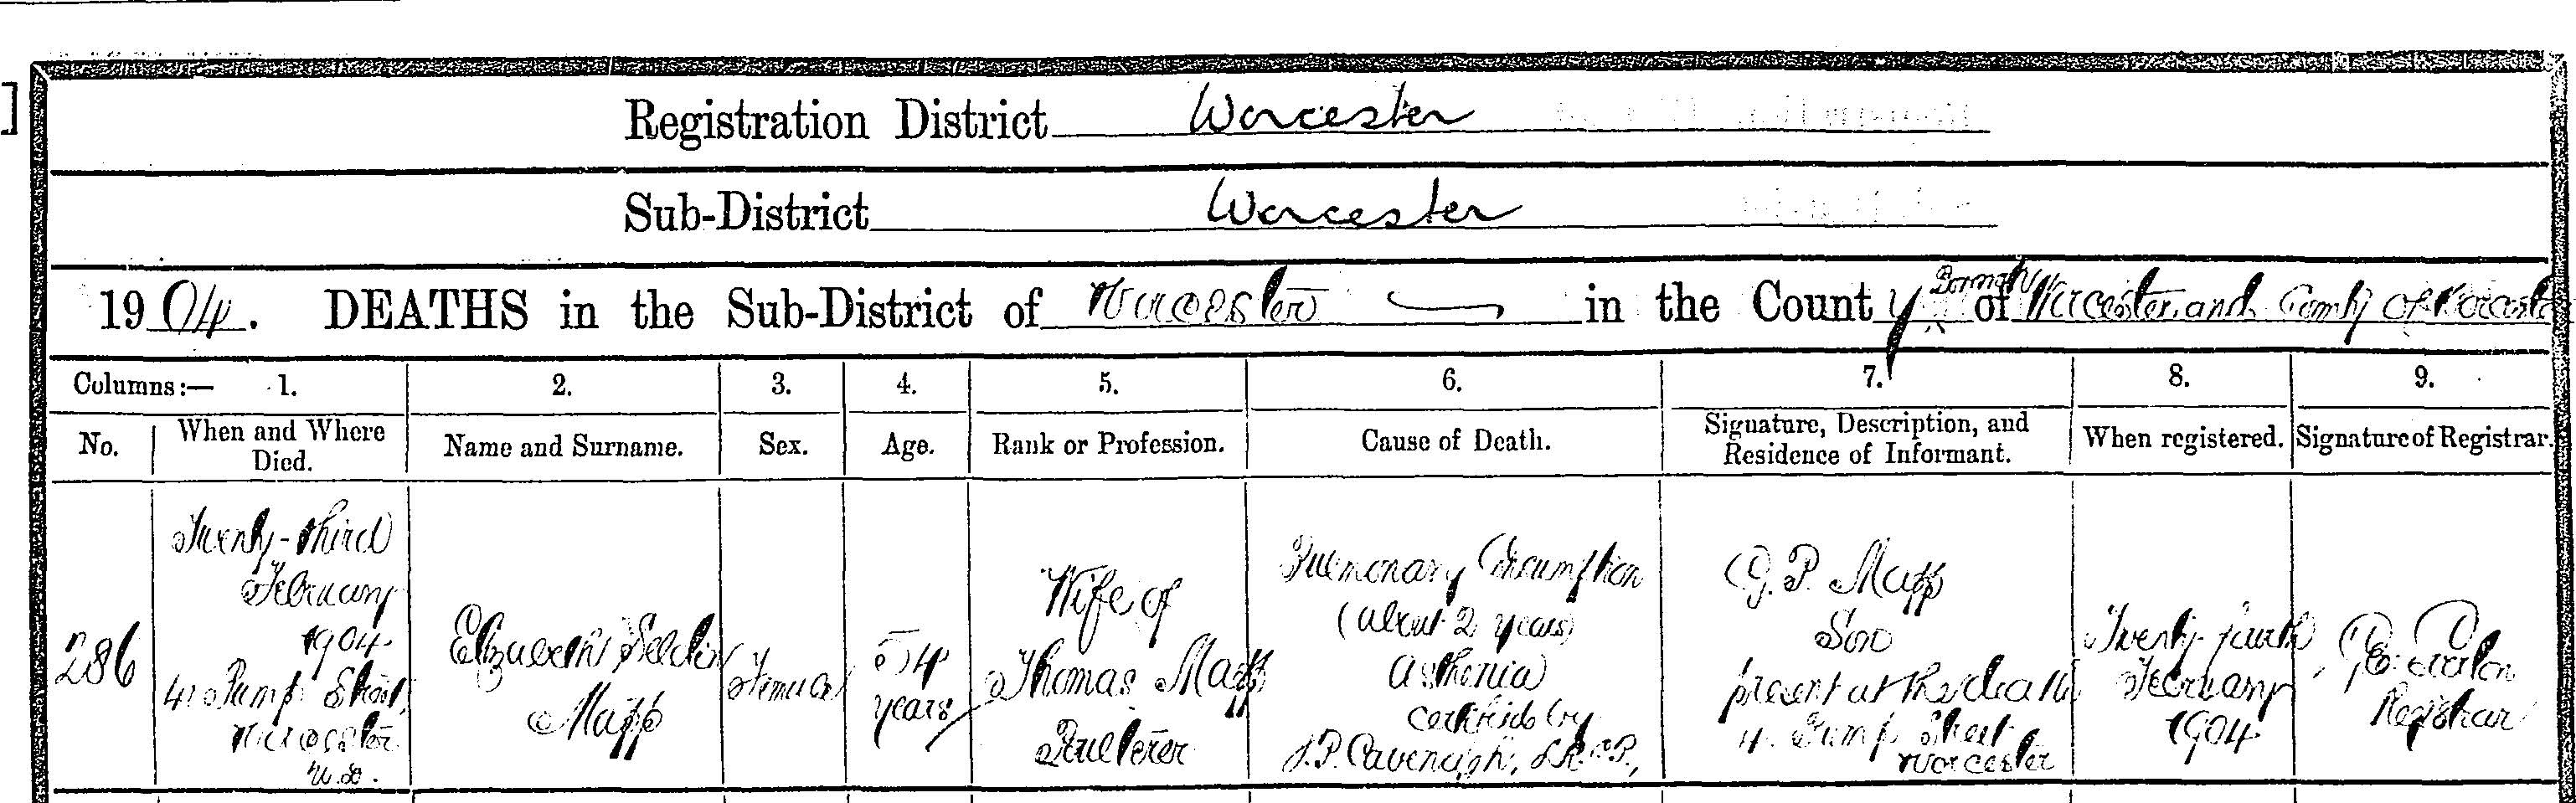 Registration District Worcester
Sub-District Worcester
1904. DEATHS in the Sub-District of Worcester in the County Borough of Worcester and County of Worcester
Columns:— 1. 2. 3. 4. 5. 6. 7. 8. 9.
No. When and Where Died. Name and Surname. Sex. Age. Rank or Profession. Cause of Death. Signature, Description, and Residence of Informant. When registered. Signature of Registrar.
286
Twenty-third
February
1904
4 Pump Street,
Worcester
U.D.
Elizabeth
Mapp
Female
54
years
Wife of
Thomas Mapp
Poulterer
Pulmonary Consumption
(about 2 years)
Asthenia
Certified by
J.P. Cavenagh, L.R.C.P.,
G. P. Mapp
Son
present at the death
4 Pump Street
Worcester
Twenty fourth
February
1904
Registrar